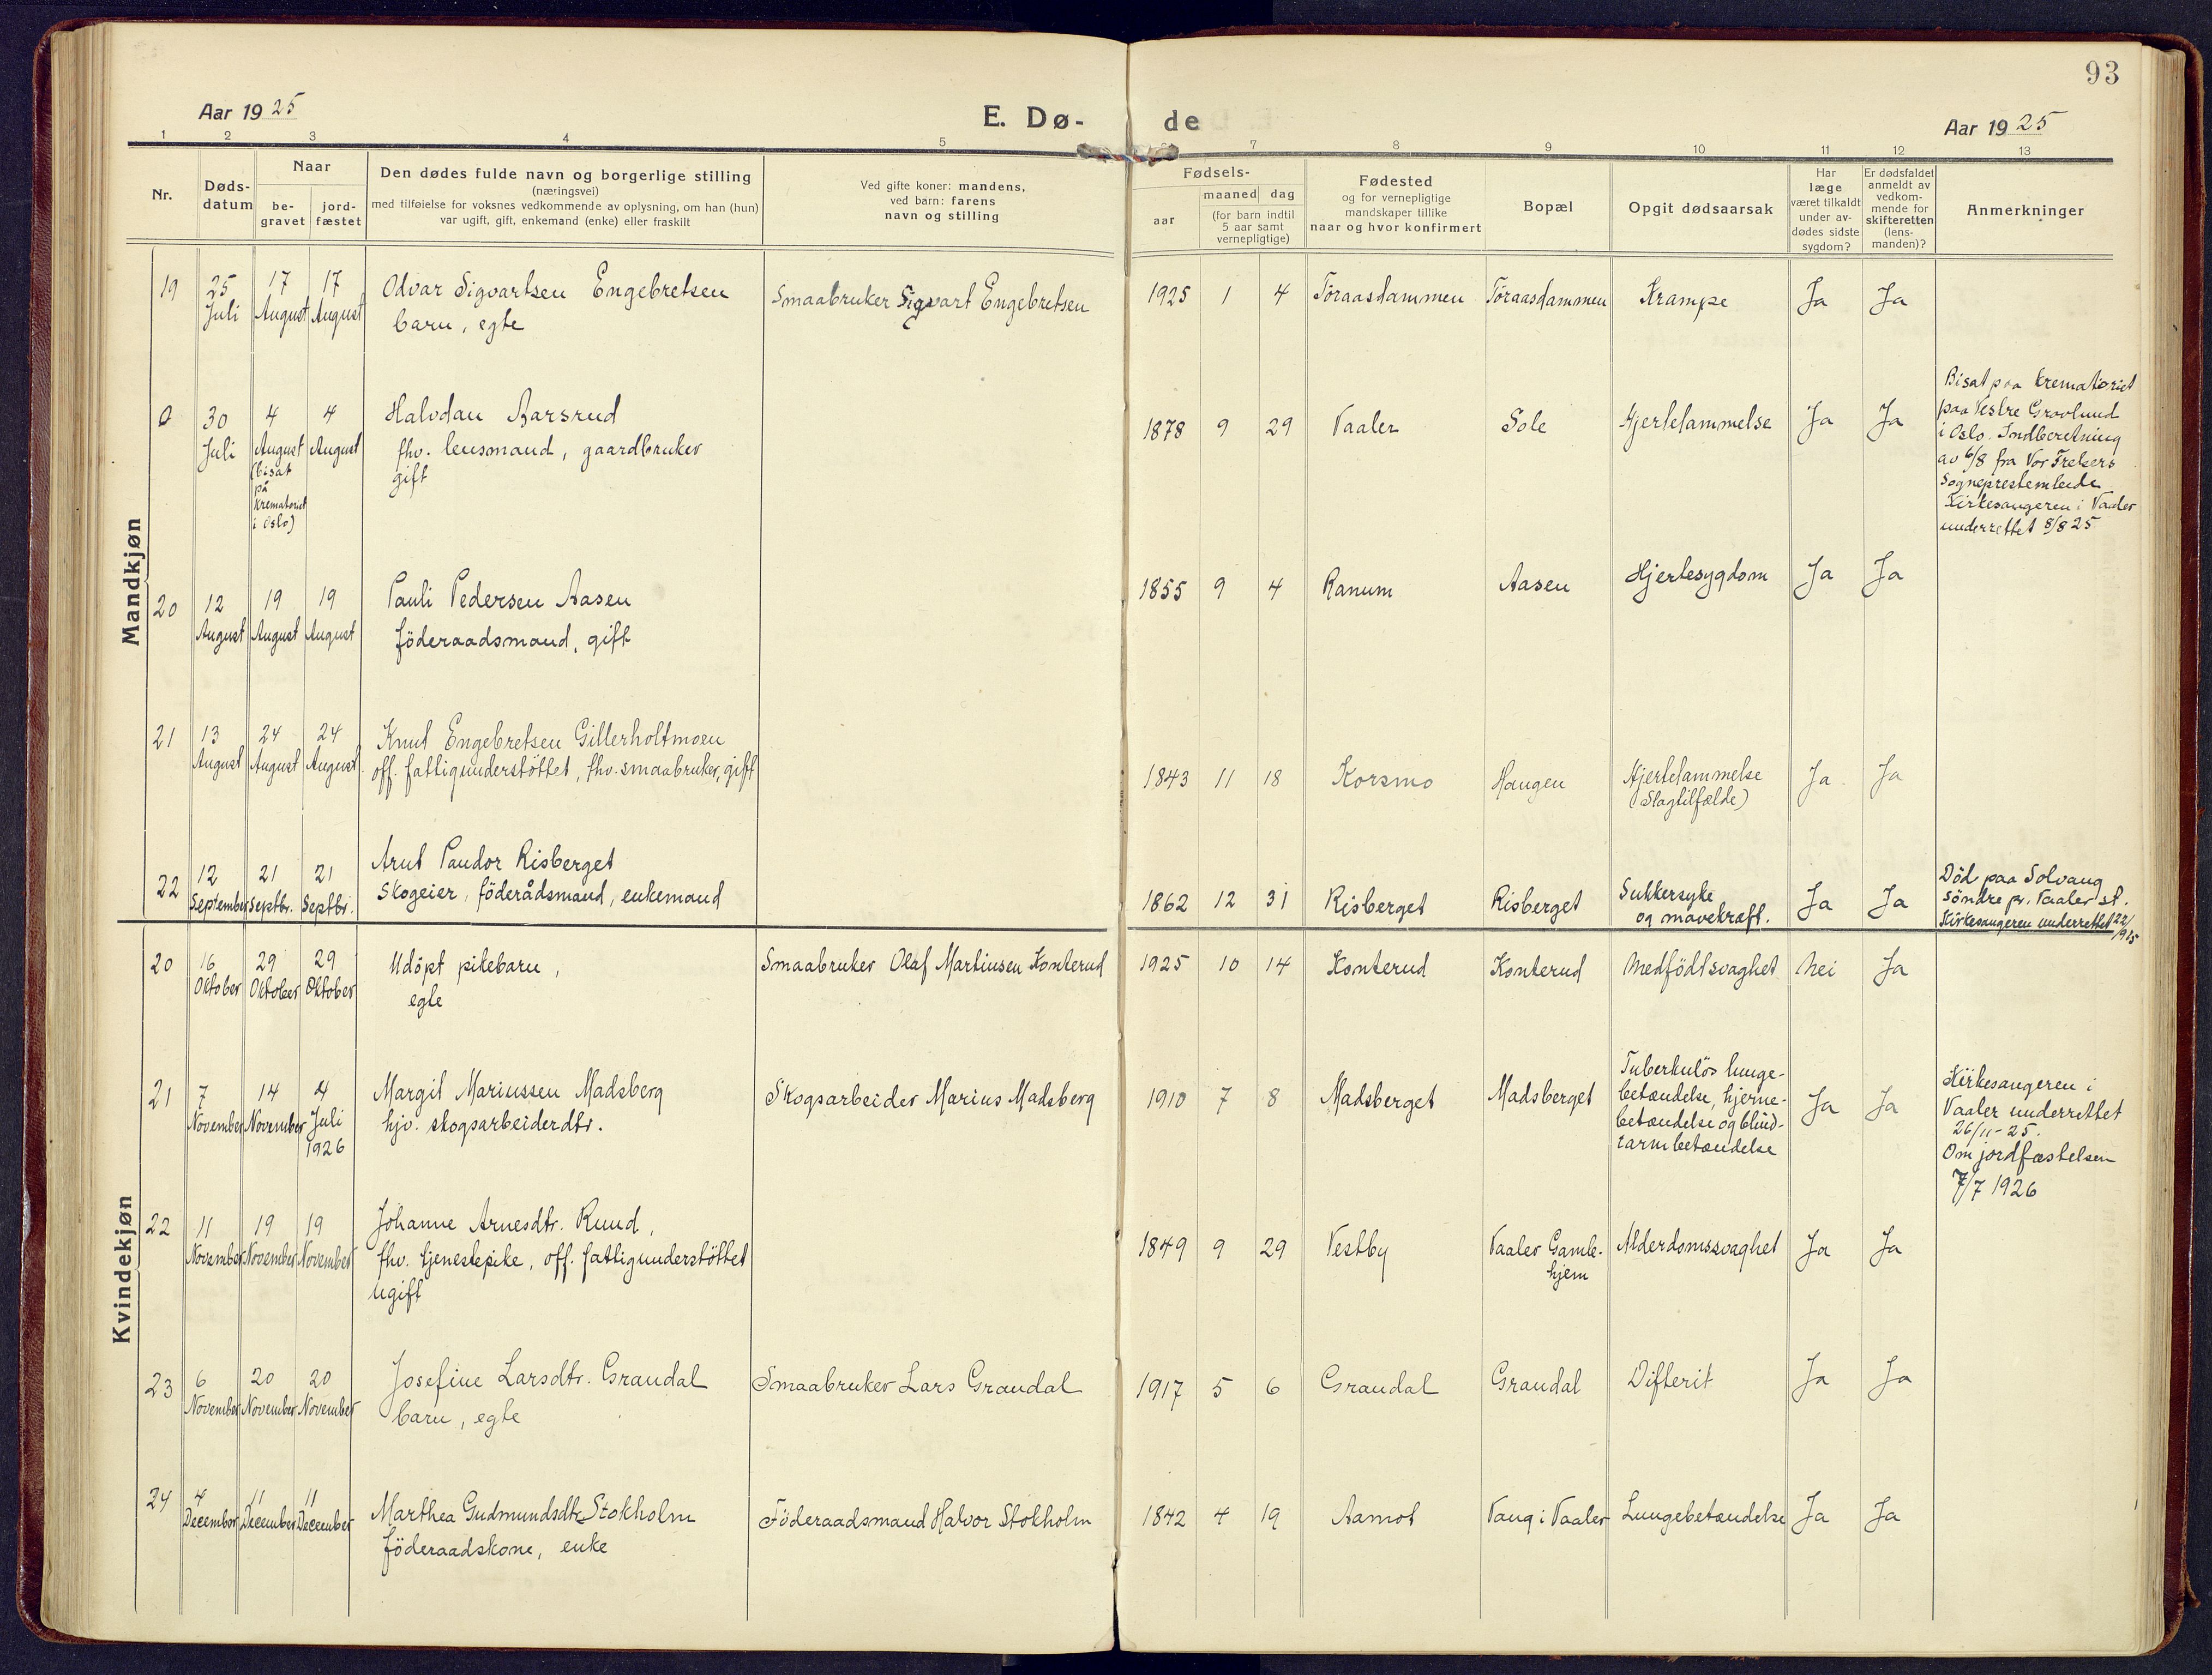 93
Aar 1925
E. Dø-
de
Aar 1925
1 2 3 4 5 7 8 9 10 11 12 13
Nr.
Døds-
datum
Naar
be-
gravet
jord-
fæstet
Den dødes fulde navn og borgerlige stilling
(næringsvei)
med tilføielse for voksnes vedkommende av oplysning, om han (hun)
var ugift, gift, enkemand (enke) eller fraskilt
Ved gifte koner: mandens,
ved barn: farens
navn og stilling
Fødsels-
aar
maaned dag
(for barn indtil
5 aar samt
vernepligtige)
Fødested
og for vernepligtige
mandskaper tillike
naar og hvor konfirmert
Bopæl
Opgit dødsaarsak
Har
læge
været tilkaldt
under av-
dødes sidste
sygdom?
Er dødsfaldet
anmeldt av
vedkom-
mende for
skifteretten
(lens-
manden)?
Anmerkninger
Mandkjøn
19 25 17 17 Odvar Sigvartsen Engebretsen Smaabruker Sigvart Engebretsen 1925 1 4 Töraasdammen Töraasdammen Krampe Ja Ja
Juli August August barn, egte
0 30 4 4 Halvdan Aarsrud 1878 9 29 Vaaler Sole Hjertelammelse Ja Ja
Juli August August fhv. lensmand, gaardbruker
(bisat gift
på
krematoriet
i Oslo)
Bisat paa krematoriet
paa Vestre Gravlund
i Oslo. Indberetning
av 6/8 fra Vor Frelsers
Sogneprestembede
Kirkesangeren i Vaaler
underrettet 8/8 25
20 12 19 19 Pauli Pedersen Aasen 1855 9 4 Ranum Aasen Hjertesygdom Ja Ja
August August August föderaadsmand, gift
21 13 24 24 Knut Engebretsen Gillerholtmoen
August August August off. fattigunderstöttet, fhv. smaabruker, gift 1843 11 18 Korsmo Haugen Hjertelammelse Ja Ja
(Slagtilfælde)
22 12 21 21 Arnt Paudor Risberget
September Septbr. Septbr. Skogeier, föderådsmand, enkemand 1862 12 31 Risberget Risberget Sukkersyke Ja Ja
og mavekræft.
Död paa Solvang
söndre pr. Vaaler st.
Kirkesangeren underrettet 22/9 25
Kvindekjøn
20 16 29 29 Udöpt pikebarn, Smaabruker Olaf Martinsen Konterud 1925 10 14 Konterud Konterud Medfödt svaghet Nei Ja
Oktober Oktober Oktober egte
21 7 14 4 Margit Mariussen Madsberg Skogsarbeider Marius Madsberg 1910 7 8 Madsberget Madsberget Tuberkulös lunge- Ja Ja
November November Juli hjv. skogsarbeiderdtr. betændelse, hjerne-
1926 betændelse og blind-
tarmbetændelse
Kirkesangeren i
Vaaler underrettet
26/11-25.
Om jordfæstelsen
7/7 1926
22 11 19 19 Johanne Arnesdtr. Ruud, 1849 9 29 Vestby Vaaler Gamle- Alderdomssvaghet Ja Ja
November November November fhv. tjenestepike, off. fattigunderstöttet hjem
ugift
23 6 20 20 Josefine Larsdtr. Grandal Smaabruker Lars Grandal 1917 5 6 Grandal Grandal Difterit Ja Ja
November November November barn, egte
24 4 11 11 Marthea Gudmundsdtr. Stokholm Föderaadsmand Halvor Stokholm 1842 4 19 Aamot Vang i Vaaler Lungebetændelse Ja Ja
December December December föderaadskone, enke